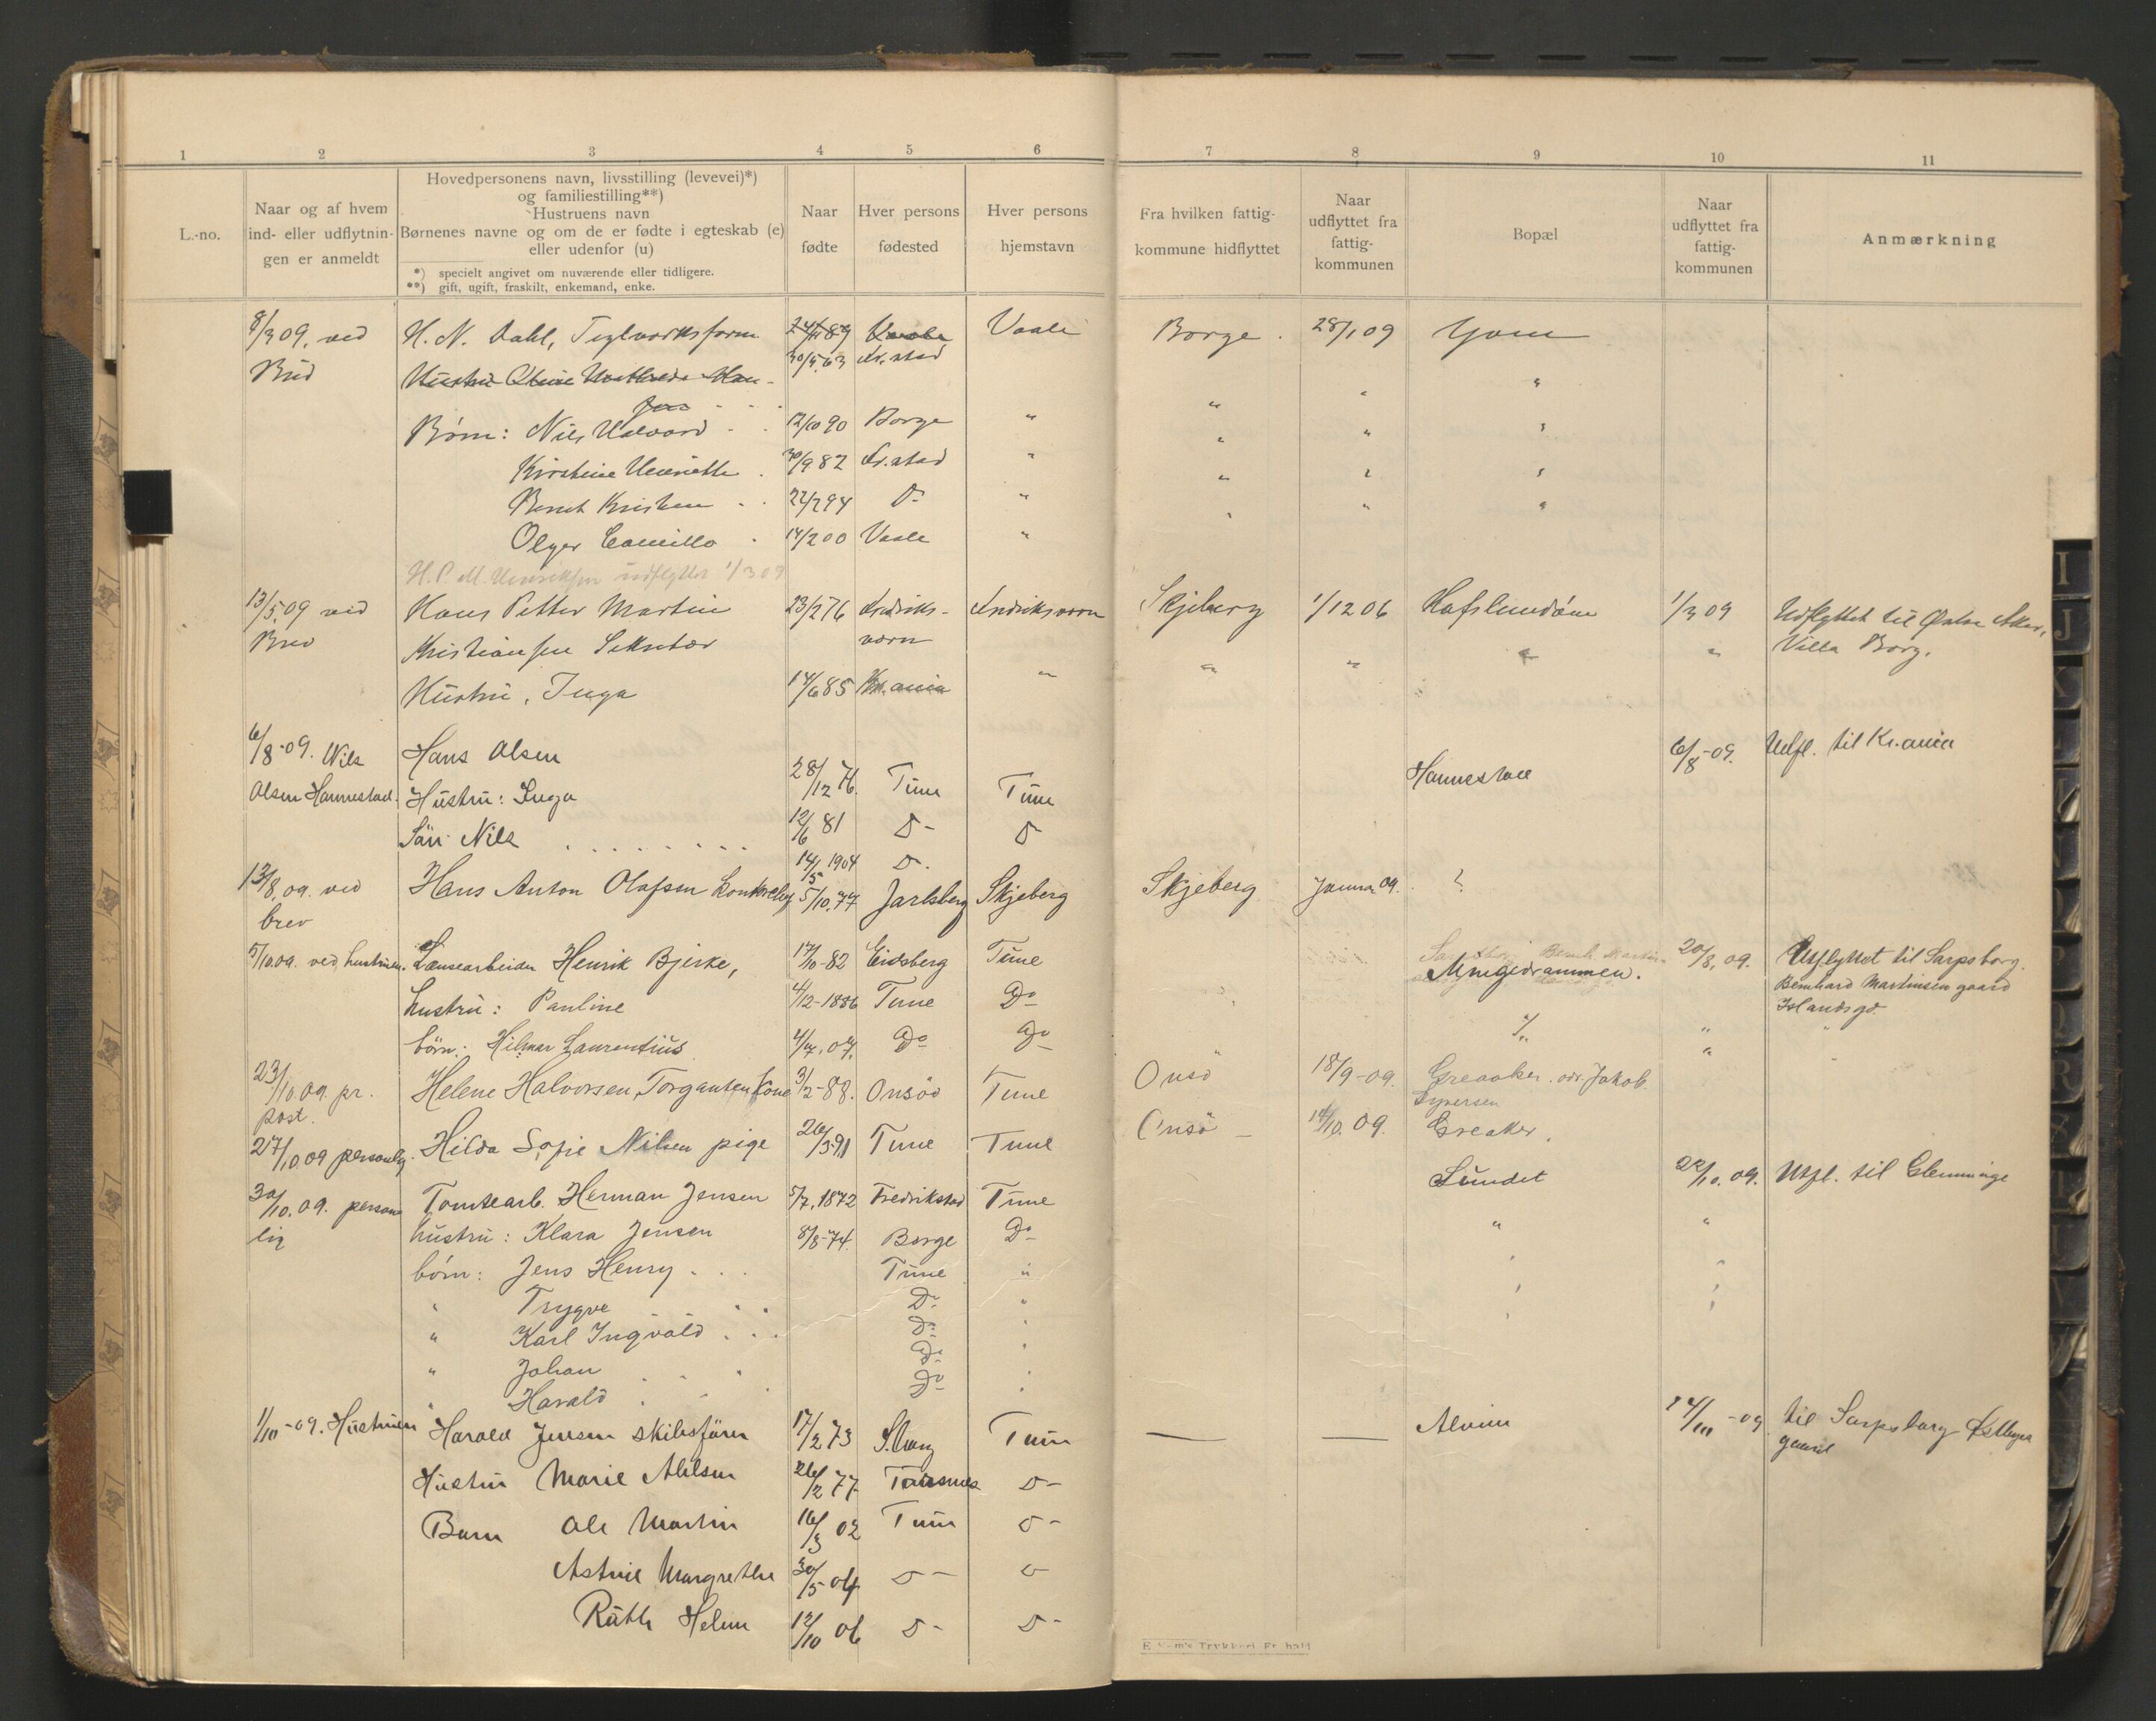 1 2 3 4 5 6 7 8 9 10 11
L.-no.
Naar og af hvem
ind- eller udflytnin-
gen er anmeldt
Hovedpersonens navn, livsstilling (levevei)*)
og familiestilling**)
Hustruens navn
Børnenes navne og om de er fødte i egteskab (e)
eller udenfor (u)
*) specielt angivet om nuværende eller tidligere.
**) gift, ugift, fraskilt, enkemand, enke.
Naar
fødte
Hver persons
fødested
Hver persons
hjemstavn
Fra hvilken fattig-
kommune hidflyttet
Naar
udflyttet fra
fattig-
kommunen
Bopæl
Naar
udflyttet fra
fattig-
kommunen
Anmærkning
8/3 09, ved H. N. Dahl, 24/11 89 Vaale Borge 28/1 09
Brev Hustru 30/5 63 Fr.stad " " "
Børn: Nils Halvard 12/10 90 Borge " " " "
Kirstine Henriette 30/9 82 Fr.stad " " " "
Bernt Kristian 22/2 94 Do " " " "
Olger Camillo 14/2 00 Vaale "
H. P. M. udflyttet 1/3 09
13/5 09 ved Hans Petter Martin 23/2 76 Fredriks- Fredriksværn Skjeberg 1/12 06 Hafslundsøen 1/3 09 Udflyttet til Østre Aker,
Brev Kristiansen Sekretær værn " " " " Villa Borg.
Hustru, Inga 14/6 85 Kr.ania "
6/8-09. Nils Hans Olsen 28/12 76 Tune Tune Hannestad 6/8-09. Udfl. til Kr.ania
Olsen Hannestad. Hustru: Inga 12/6 81 D- D
Sön Nils 14/5 1904 D-
13/8, 09. ved Hans Anton Olafsen 5/10, 77 Jarlsberg Skjeberg Skjeberg Januar 09. ?
brev
5/10 09. ved hustruen. Lænsearbeider Henrik Bjerke, 17/10-82 Eidsberg Tune 20/8, 09. Utflyttet til Sarpsborg.
hustru: Pauline 4/12-1886 Tune Do Bernhard Martinsen gaard
Islandsgd.
børn: Hilmar Laurentius 4/4, 07. Do Do " "
23/10.09. pr. Helene Halvorsen, Torgauten kone 3/2-88. Onsöo Tune Onsö 18/9-09. Greaaker. adr. Jakob
post. Syversen
27/10.09 personlig. Hilda Sofie Nilsen pige 26/5 91 Tune Tune Onsö - 14/10.09. Greaker.
30/10.09. person- Tomtearb. Herman Jensen 5/7, 1872 Fredrikstad Tune Sundet 22/10.09. Utfl. til Glemminge
lig hustru: Klara Jensen 8/8-74. Borge Do " "
børn: Jens Henry Tune "
" Trygve Do "
" Karl Ingvald Do "
" Johan Do "
" Harald Do "
1/10-09. Hustruen Harald Jensen skibsfører 17/2 73 Tune — — Alvim -09 til Sarpsborg
gaard
Hustru Marie 26/2 77 D-
Barn Ole Martin 16/3 02 Tune D-
Astrid Margrethe 30/5 04 D- D
Ruth Helene 12/10 06 D- D-
I
J
K